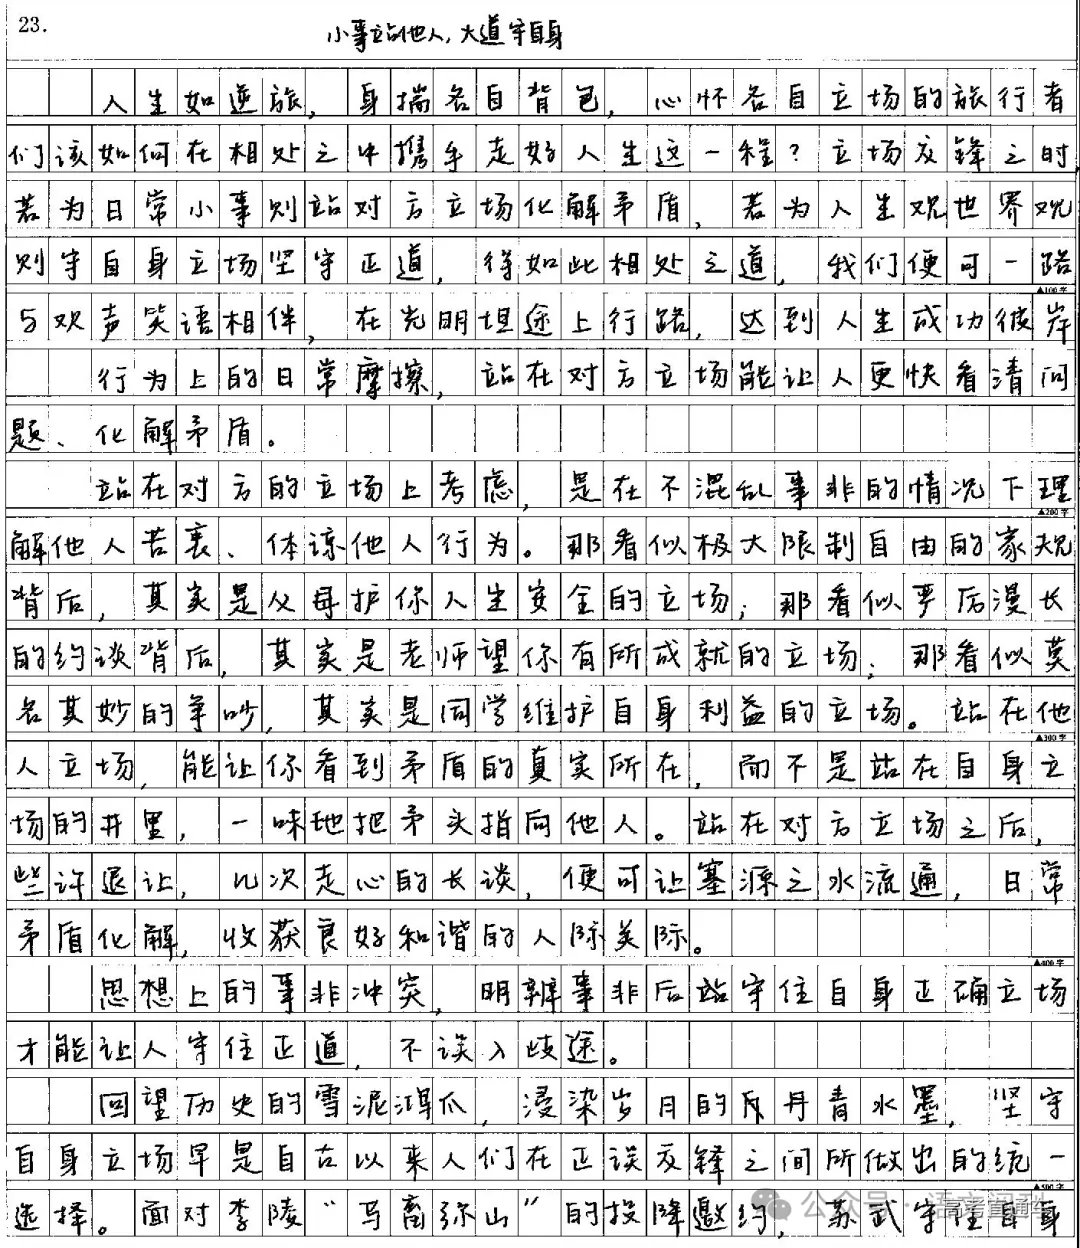 23.
小事立站他人,大道守自身
人生如逆旅,身揣各自背包,心怀各自立场的旅行者
们该如何在相处之中携手走好人生这一程?立场交锋之时,
若为日常小事则站对方立场化解矛盾,若为人生观世界观
则守自身立场坚守正道,得如此相处之道,我们便可一路
▲100字
与欢声笑语相伴,在光明坦途上行路,达到人生成功彼岸
行为上的日常摩擦,站在对方立场能让人更快看清问
题、化解矛盾。
站在对方的立场上考虑,是在不混乱事非的情况下理
▲200字
解他人苦衷、体谅他人行为。那看似极大限制自由的家规
背后,其实是父母护你人生安全的立场;那看似严厉漫长
的约谈背后,其实是老师望你有所成就的立场;那看似莫
名其妙的争吵,其实是同学维护自身利益的立场。站在他
▲300字
人立场,能让你看到矛盾的真实所在,而不是站在自身立
场的井里,一味地把矛头指向他人。站在对方立场之后,
些许退让,几次走心的长谈,便可让塞源之水流通,日常
矛盾化解,收获良好和谐的人际关际。
▲400字
思想上的事非冲突,明辨事非后站守住自身正确立场
才能让人守住正道,不误入歧途。
回望历史的雪泥鸿爪,浸染岁月的丹青水墨,坚守
自身立场早是自古以来人们在正误交锋之间所做出的统一
▲500字
选择。面对李陵“马畜弥山”的投降邀约,苏武守住自身
公众号·高考直通车